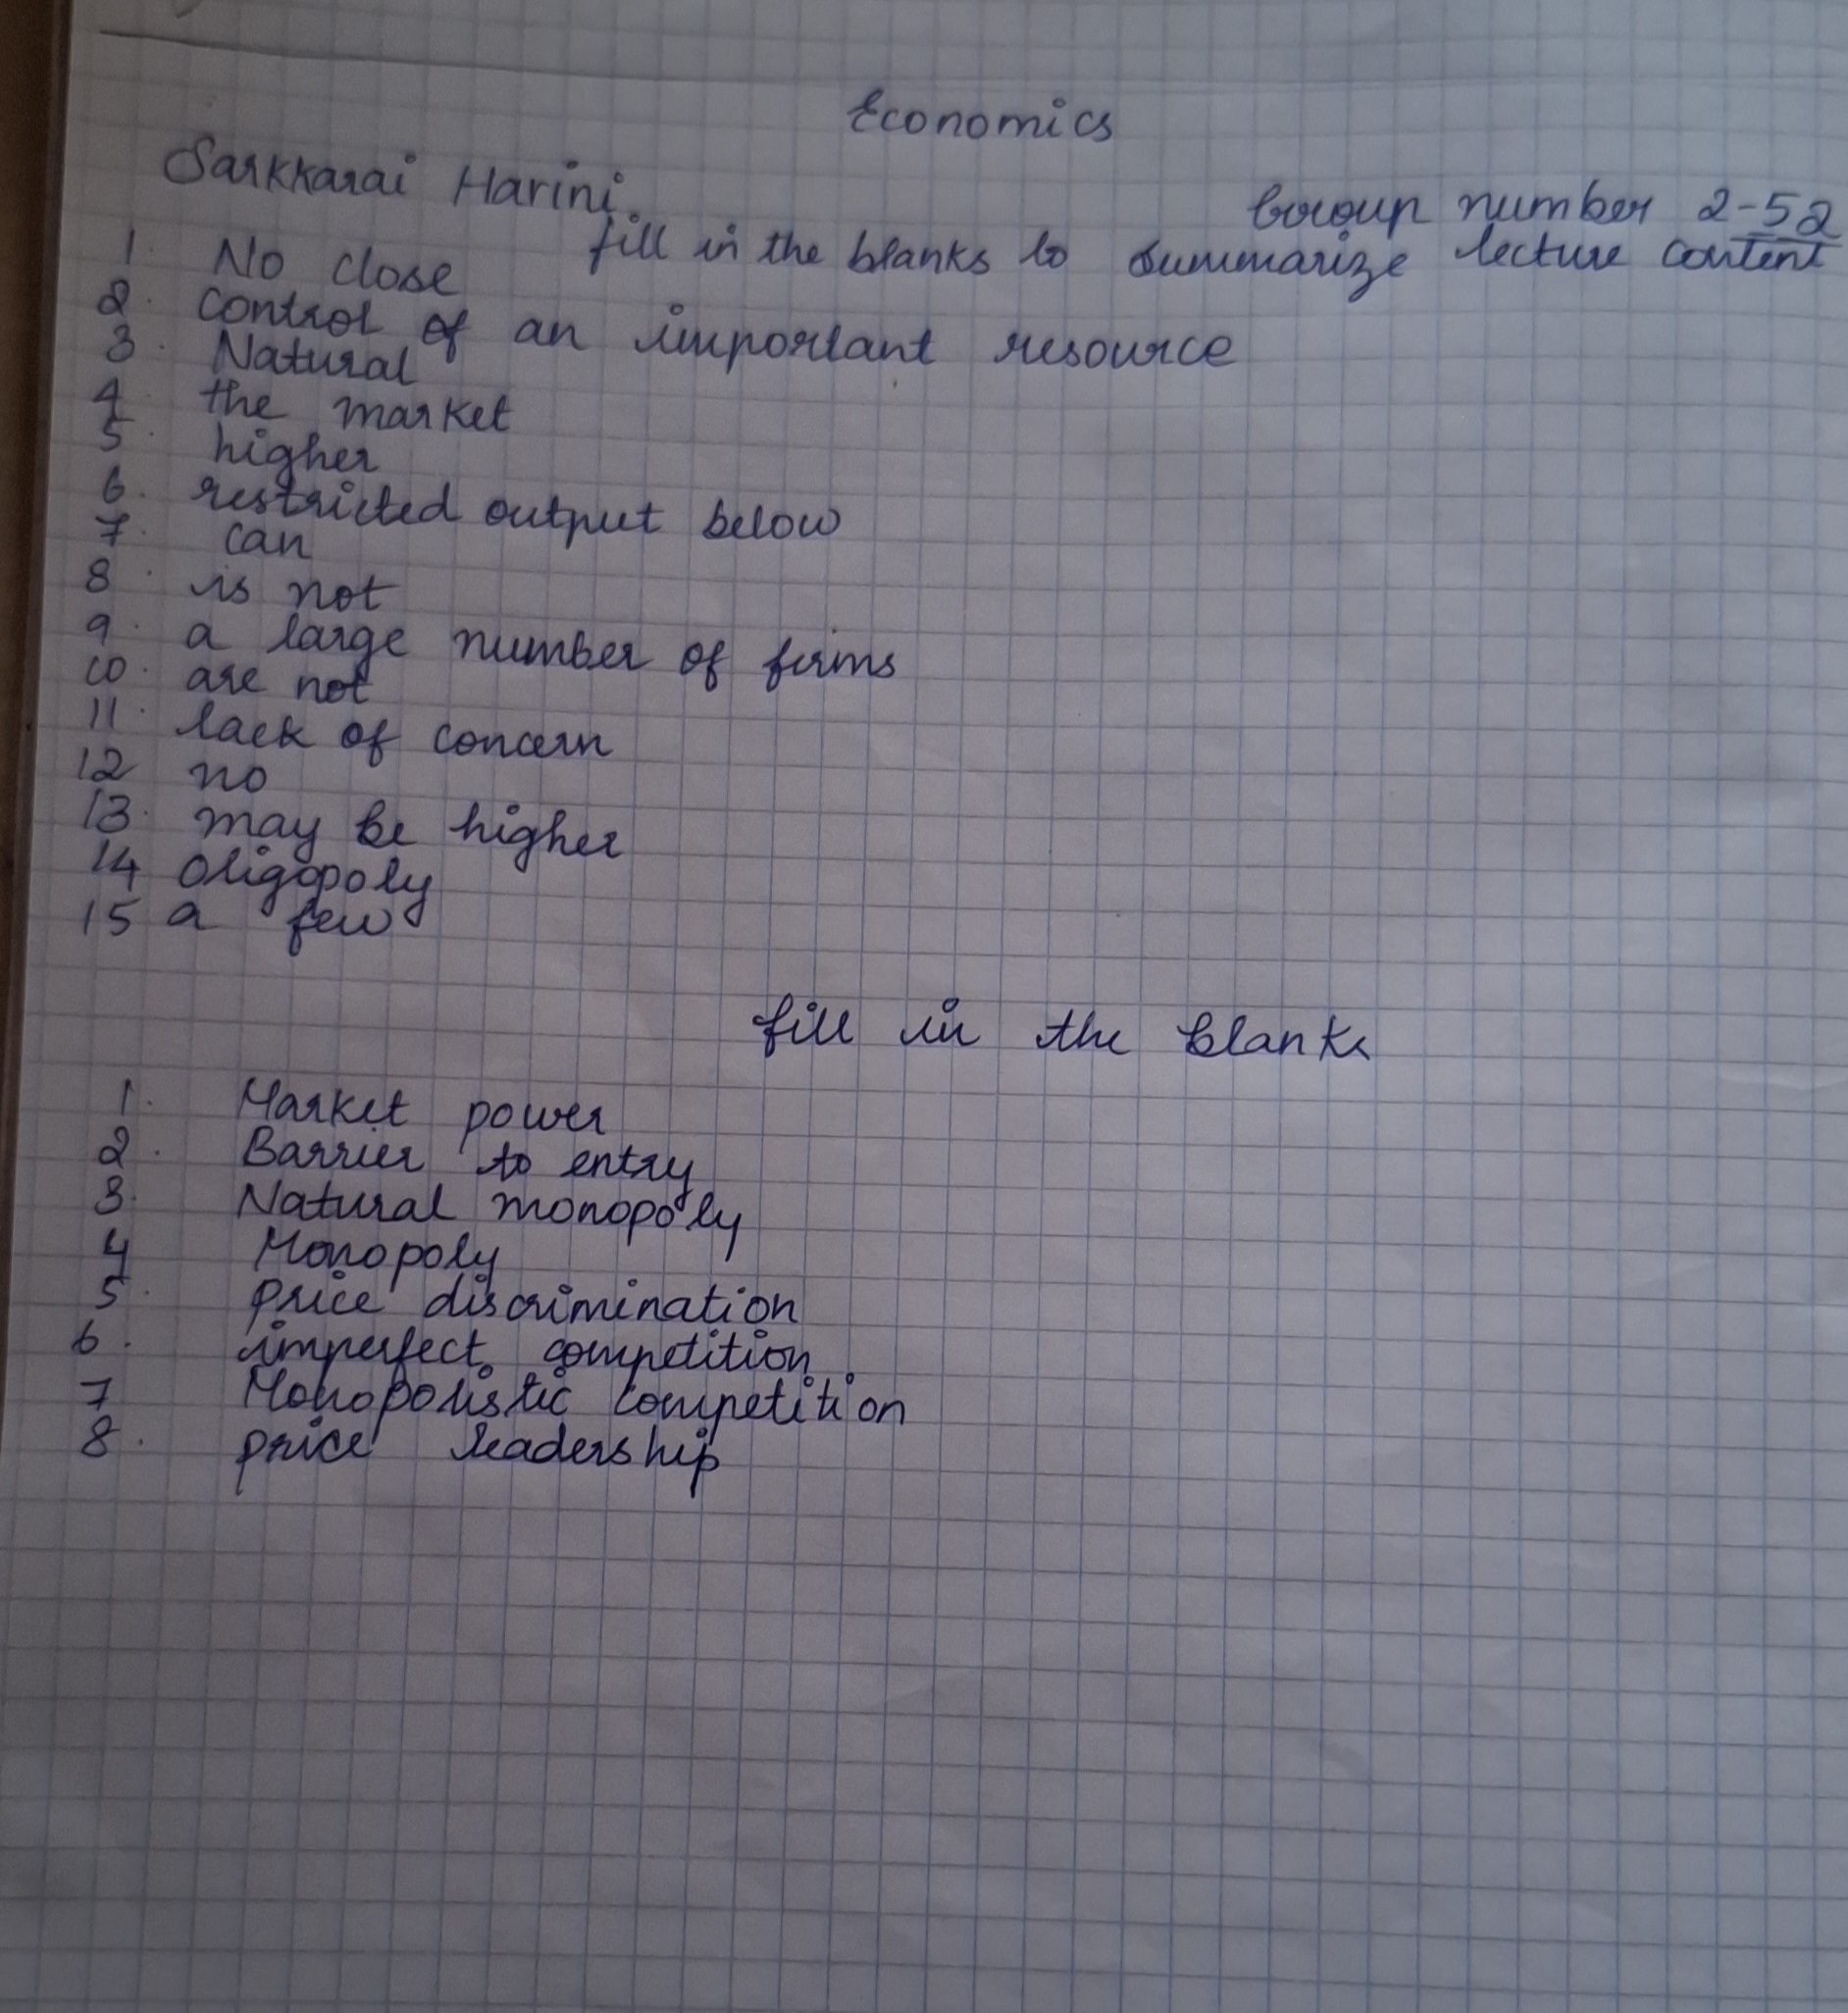 Economics
Sarkkarai Harini.
Group number 2-52
fill in the blanks to summarize lecture content
1. No close
2. control of an important resource
3. Natural
4. the market
5. higher
6. restricted output below
7. can
8. is not
9. a large number of firms
10. are not
11. lack of concern
12 no
13. may be higher
14 oligopoly
15 a few
fill in the blanks
1. Market power
2. Barrier to entry
3. Natural monopoly
4 Monopoly
5. price discrimination
6. imperfect competition
7 Monopolistic competition
8. price leadership